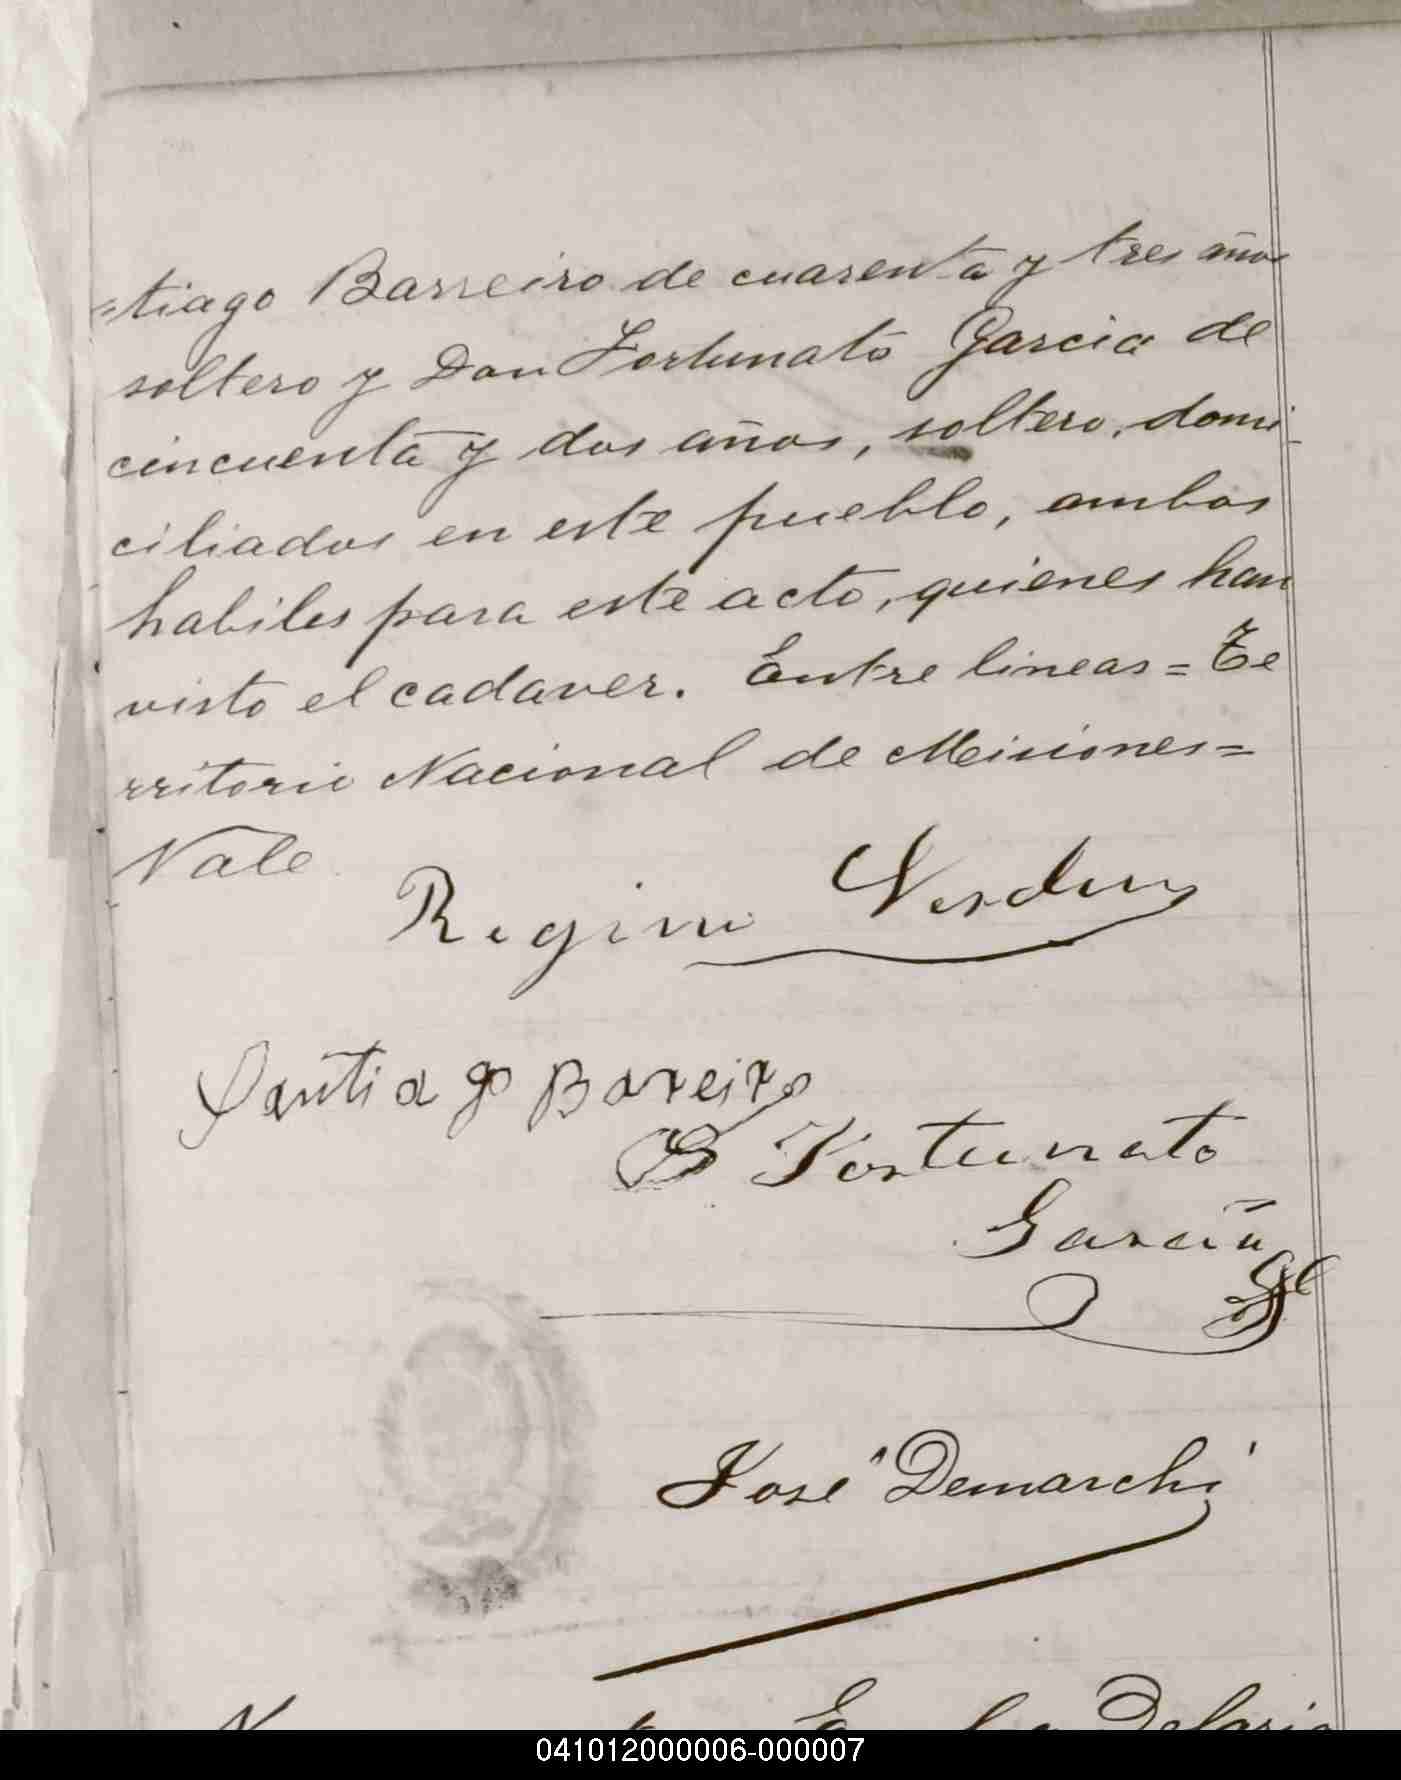 =tiago Barreiro de cuarenta y tres años
soltero y Don Fortunato Garcia de
cincuenta y dos años, soltero, domi-
ciliados en este pueblo, ambos
habiles para este acto, quienes han
visto el cadaver. Entre lineas = Te
rritorio Nacional de Misiones=
Vale
Regino Verdun
Santiago Bareiro
Fortunato
Garcia
José Demarchi
041012000006-000007